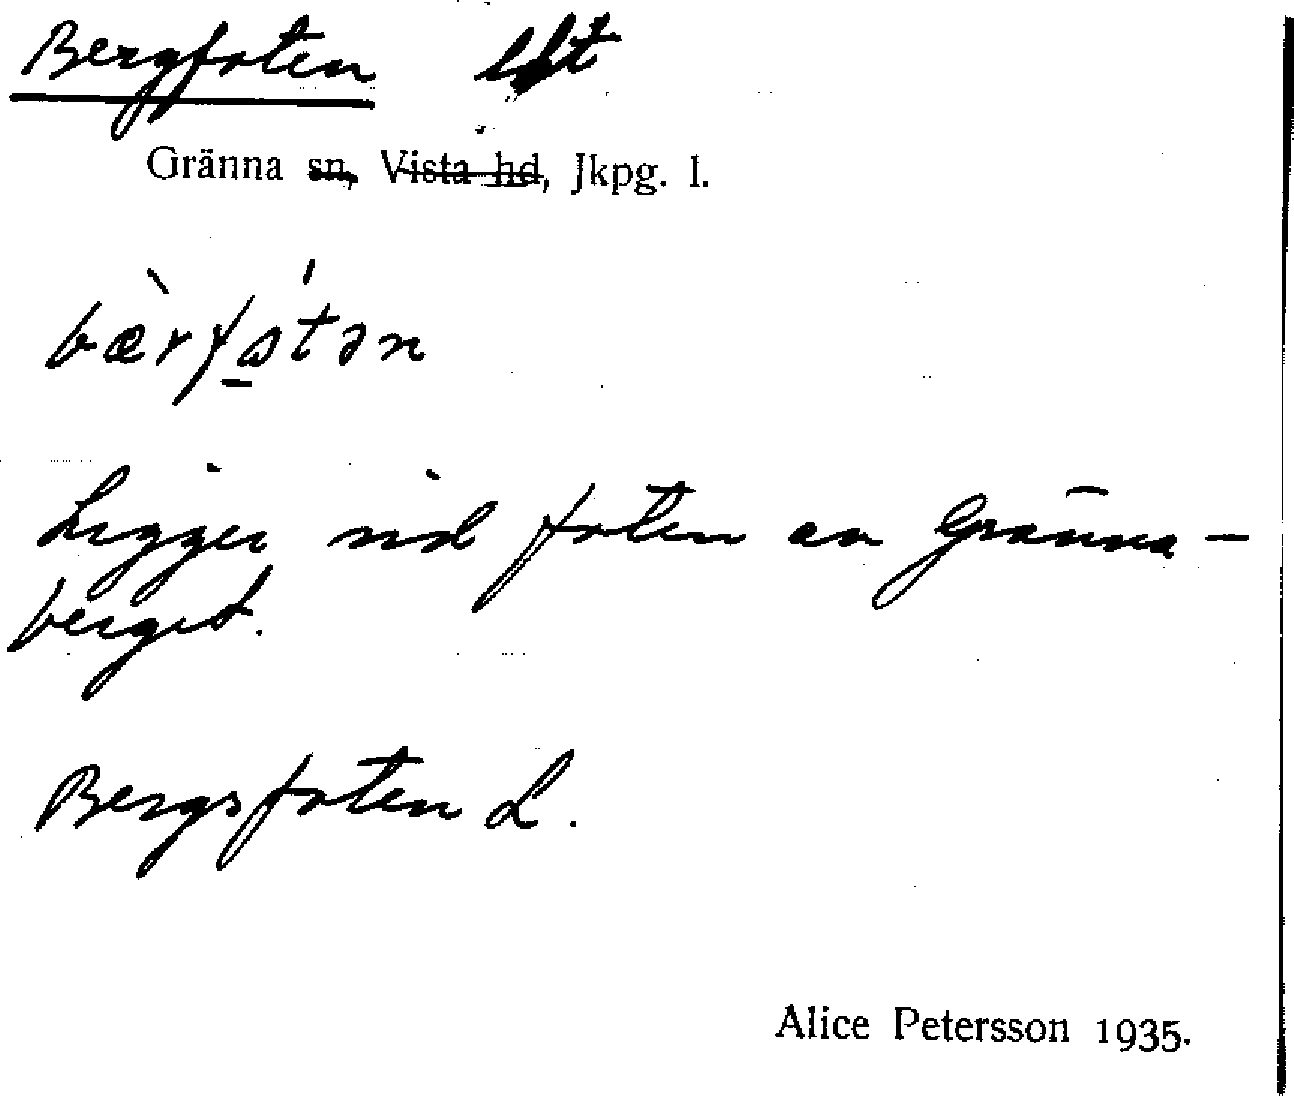 Bergfoten
Gränna sn, Vista hd, Jkpg. l.
bæ̀rfó̲tən
Ligger vid foten av Gränna-
berget.
Bergsfoten L.
Alice Petersson 1935.